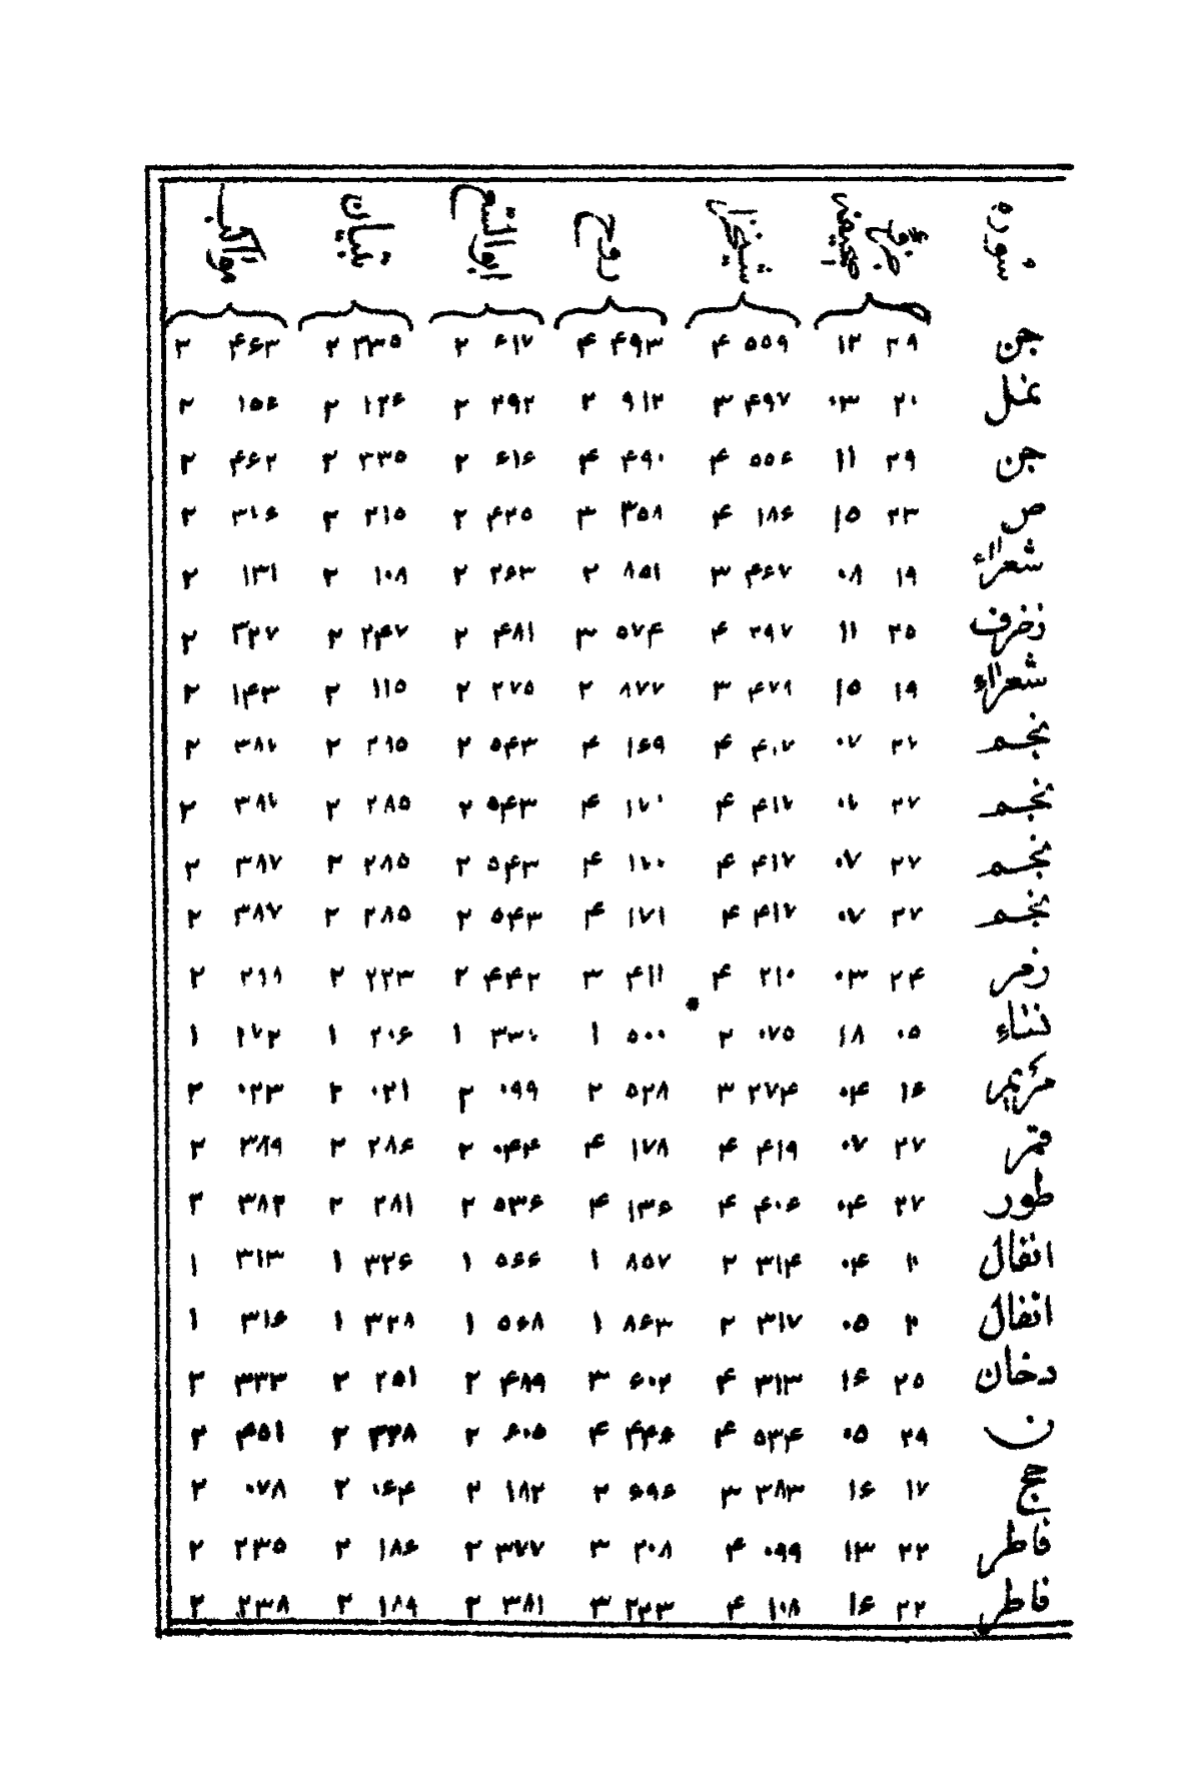 سوره جزؤ صحیفه شیخزاده روح ابوالسعود تبیان مواکب
جن ۲۹ ۱۲ ۵۵۹ ۴ ۴۹۳ ۴ ۶۱۷ ۲ ۳۳۵ ۲ ۴۶۳ ۲
نمل ۲۰ ۰۳ ۴۹۷ ۳ ۹۱۲ ۲ ۲۹۲ ۲ ۱۲۶ ۲ ۱۵۶ ۲
جن ۲۹ ۱۱ ۵۵۶ ۴ ۴۹۰ ۴ ۶۱۶ ۲ ۳۳۵ ۲ ۴۶۲ ۲
ص ۲۳ ۱۵ ۱۸۶ ۴ ۳۵۸ ۳ ۴۲۵ ۲ ۲۱۵ ۲ ۳۱۶ ۲
شعراء ۱۹ ۰۸ ۴۶۷ ۳ ۸۵۱ ۲ ۲۶۳ ۲ ۱۰۸ ۲ ۱۳۱ ۲
زخرف ۲۵ ۱۱ ۲۹۷ ۴ ۵۷۴ ۳ ۴۸۱ ۲ ۲۴۷ ۲ ۳۲۷ ۲
شعراء ۱۹ ۱۵ ۴۷۹ ۳ ۸۷۷ ۲ ۲۷۵ ۲ ۱۱۵ ۲ ۱۴۳ ۲
نجم ۲۷ ۰۷ ۴۱۷ ۴ ۱۶۹ ۴ ۵۴۳ ۲ ۲۸۵ ۲ ۳۸۷ ۲
نجم ۲۷ ۰۷ ۴۱۷ ۴ ۱۷۰ ۴ ۵۴۳ ۲ ۲۸۵ ۲ ۳۸۷ ۲
نجم ۲۷ ۰۷ ۴۱۷ ۴ ۱۷۰ ۴ ۵۴۳ ۲ ۲۸۵ ۲ ۳۸۷ ۲
نجم ۲۷ ۰۷ ۴۱۷ ۴ ۱۷۱ ۴ ۵۴۳ ۲ ۲۸۵ ۲ ۳۸۷ ۲
زمر ۲۴ ۰۳ ۲۱۰ ۴ ۴۱۱ ۳ ۴۴۲ ۲ ۲۲۳ ۲ ۲۹۹ ۲
نساء ۰۵ ۱۸ ۰۷۵ ۲ ۵۰۰ ۱ ۳۳۰ ۱ ۲۰۶ ۱ ۱۷۲ ۱
مریم ۱۶ ۰۴ ۲۷۴ ۳ ۵۲۸ ۲ ۰۹۹ ۲ ۰۲۱ ۲ ۰۲۳ ۲
قمر ۲۷ ۰۷ ۴۱۹ ۴ ۱۷۸ ۴ ۰۴۴ ۲ ۲۸۶ ۲ ۳۸۹ ۲
طور ۲۷ ۰۴ ۴۰۶ ۴ ۱۳۶ ۴ ۵۳۶ ۲ ۲۸۱ ۲ ۳۸۲ ۲
انفال ۱۰ ۰۴ ۳۱۴ ۲ ۸۵۷ ۱ ۵۶۶ ۱ ۳۲۶ ۱ ۳۱۳ ۱
انفال ۱۰ ۰۵ ۳۱۷ ۲ ۸۶۳ ۱ ۵۶۸ ۱ ۳۲۸ ۱ ۳۱۶ ۱
دخان ۲۵ ۱۶ ۳۱۳ ۴ ۶۰۲ ۳ ۴۸۹ ۲ ۲۵۱ ۲ ۳۳۳ ۲
ن ۲۹ ۰۵ ۵۳۴ ۴ ۴۴۶ ۴ ۶۰۵ ۲ ۳۲۸ ۲ ۴۵۱ ۲
حج ۱۷ ۱۶ ۳۸۳ ۳ ۶۹۶ ۲ ۱۸۲ ۲ ۰۶۴ ۲ ۰۷۸ ۲
فاطر ۲۲ ۱۳ ۰۹۹ ۴ ۲۰۸ ۳ ۳۷۷ ۲ ۱۸۶ ۲ ۲۳۵ ۲
فاطر ۲۲ ۱۶ ۱۰۸ ۴ ۲۲۳ ۳ ۳۸۱ ۲ ۱۸۹ ۲ ۲۳۸ ۲